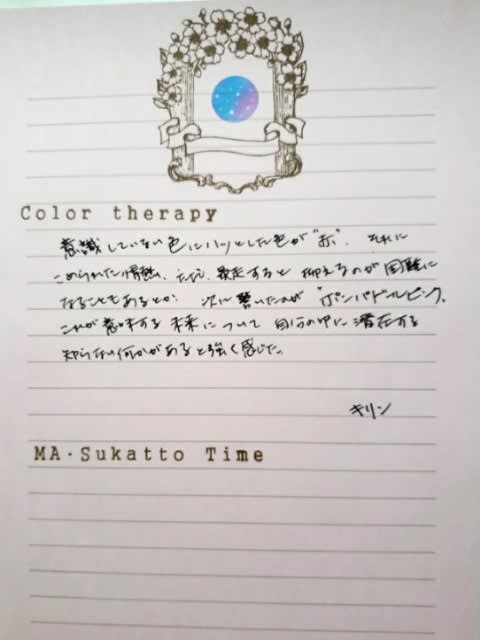 Color therapy
意識していない色にハッとした色が"赤"、それに
こめられた情熱、ただ、暴走すると抑えるのが困難に
なることもあるとか。次に驚いたのが"ポンパドールピンク、
これが意味する未来について自分の中に潜在する
知らない何かがあると強く感じた。
キリン
MA·Sukatto Time